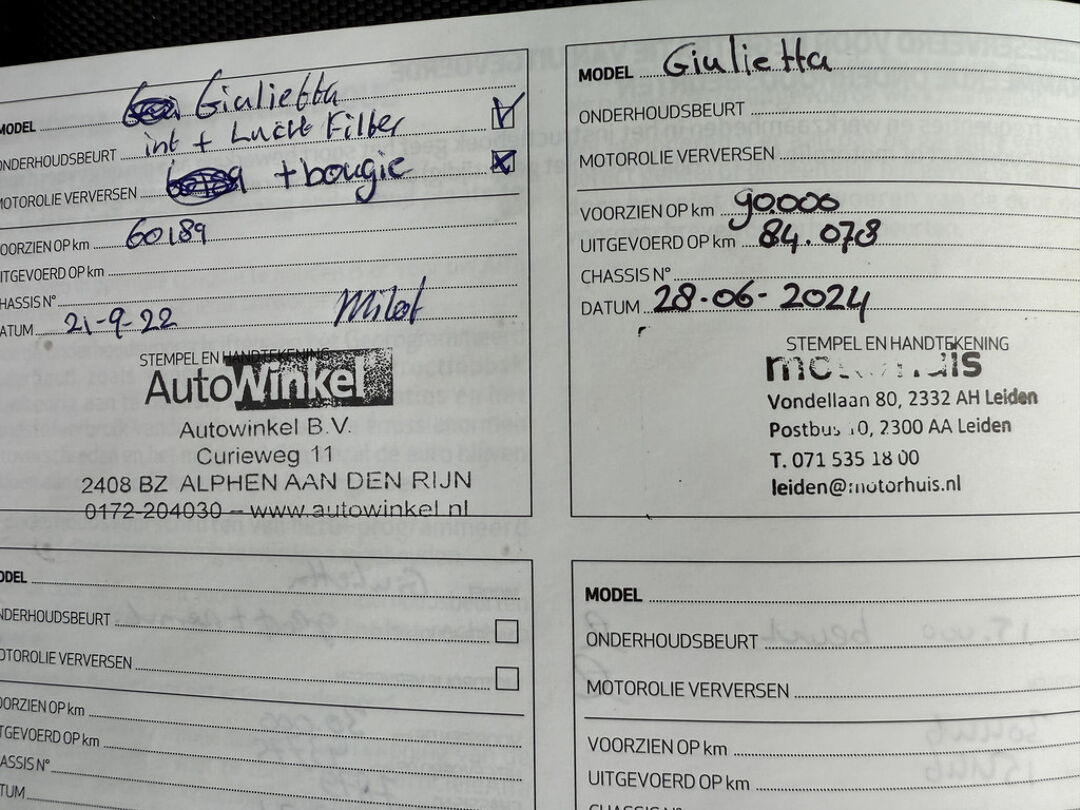 MODEL Giulietta
ONDERHOUDSBEURT int + Lucht Filter
MOTOROLIE VERVERSEN + bougie
OORZIEN OP km 60189
ITGEVOERD OP km
HASSIS N°
ATUM 21-9-22
STEMPEL EN HANDTEKENING
AutoWinkel
Autowinkel B.V.
Curieweg 11
2408 BZ ALPHEN AAN DEN RIJN
0172-204030 – www.autowinkel.nl
MODEL Giulietta
ONDERHOUDSBEURT
MOTOROLIE VERVERSEN
VOORZIEN OP km 90.000
UITGEVOERD OP km 84.078
CHASSIS N°
DATUM 28-06-2024
STEMPEL EN HANDTEKENING
Vondellaan 80, 2332 AH Leiden
Postbus 0, 2300 AA Leiden
T. 071 535 18 00
leiden@motorhuis.nl
ODEL
NDERHOUDSBEURT
OTOROLIE VERVERSEN
OORZIEN OP km
TGEVOERD OP km
ASSIS N°
TUM
MODEL
ONDERHOUDSBEURT
MOTOROLIE VERVERSEN
VOORZIEN OP km
UITGEVOERD OP km